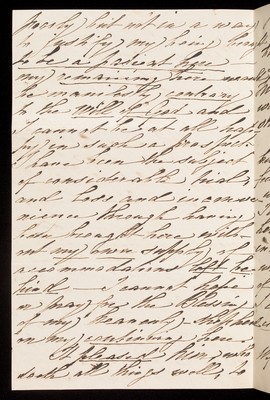 poorly but not in a way
to justify my being brought
to be a patient here
my remaining here would
be manifestly contrary
to the will of God and
I cannot be at all happy
on such a prospect.
I have been the subject
of considerable trial
and loss and inconve
nience through having
been brought here with-
out my own supply of
accommodations left be
hind - I cannot hope
or pray for the blessing
of my Heavenly
on my continuing here.
It pleased Him, who
doeth all things well, to